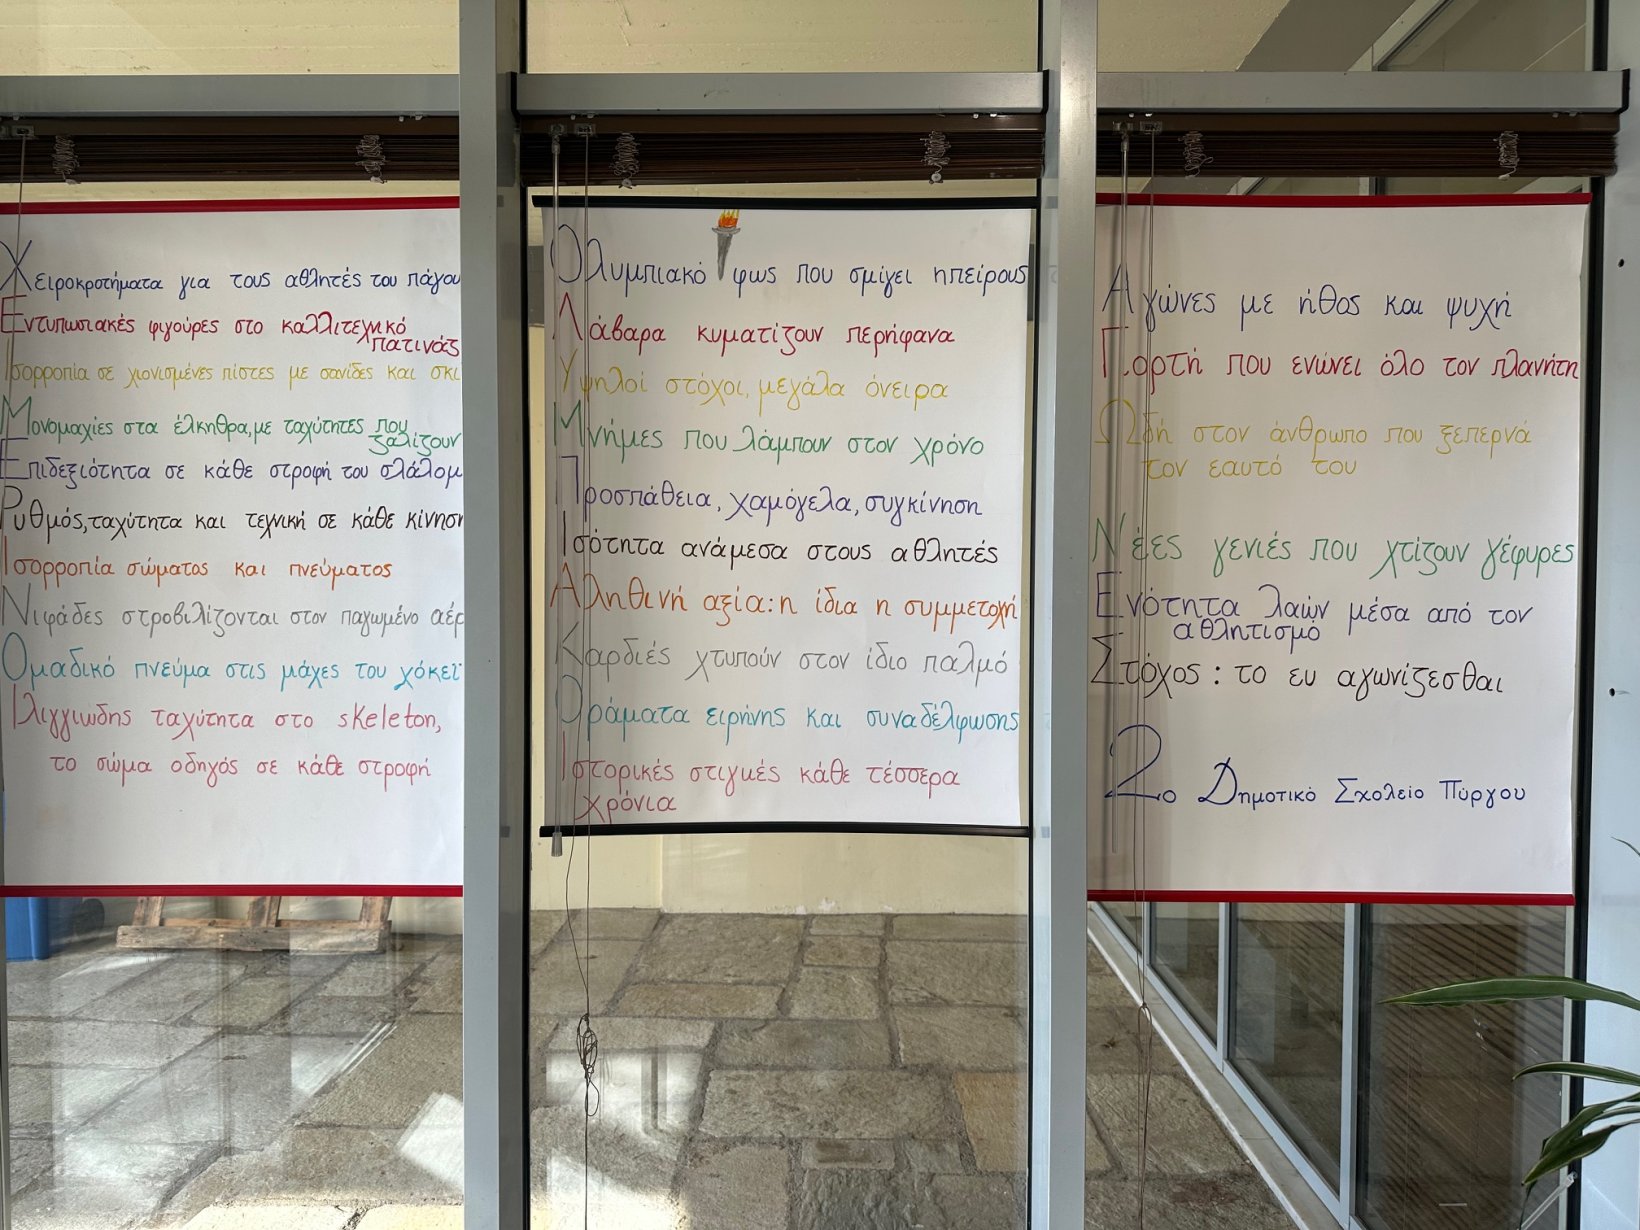 Χειροκροτήματα για τους αθλητές του πάγου
Εντυπωσιακές φιγούρες στο καλλιτεχνικό
πατινάζ
Ισορροπία σε χιονισμένες πίστες με σανίδες και σκι
Μονομαχίες στα έλκηθρα, με ταχύτητες που
ζαλίζουν
Επιδεξιότητα σε κάθε στροφή του σλάλομ
Ρυθμός, ταχύτητα και τεχνική σε κάθε κίνηση
Ισορροπία σώματος και πνεύματος
Νιφάδες στροβιλίζονται στον παγωμένο αέρ
Ομαδικό πνεύμα στις μάχες του χόκεϊ
Ιλιγγιώδης ταχύτητα στο skeleton,
το σώμα οδηγός σε κάθε στροφή
Ολυμπιακό φως που σμίγει ηπείρους
Λάβαρα κυματίζουν περήφανα
Υψηλοί στόχοι, μεγάλα όνειρα
Μνήμες που λάμπουν στον χρόνο
Προσπάθεια, χαμόγελα, συγκίνηση
Ισότητα ανάμεσα στους αθλητές
Αληθινή αξία: η ίδια η συμμετοχή
Καρδιές χτυπούν στον ίδιο παλμό
Οράματα ειρήνης και συναδέλφωσης
Ιστορικές στιγμές κάθε τέσσερα
χρόνια
Αγώνες με ήθος και ψυχή
Γιορτή που ενώνει όλο τον πλανήτη
Ωδή στον άνθρωπο που ξεπερνά
τον εαυτό του
Νέες γενιές που χτίζουν γέφυρες
Ενότητα λαών μέσα από τον
αθλητισμό
Στόχος: το ευ αγωνίζεσθαι
2ο Δημοτικό Σχολείο Πύργου